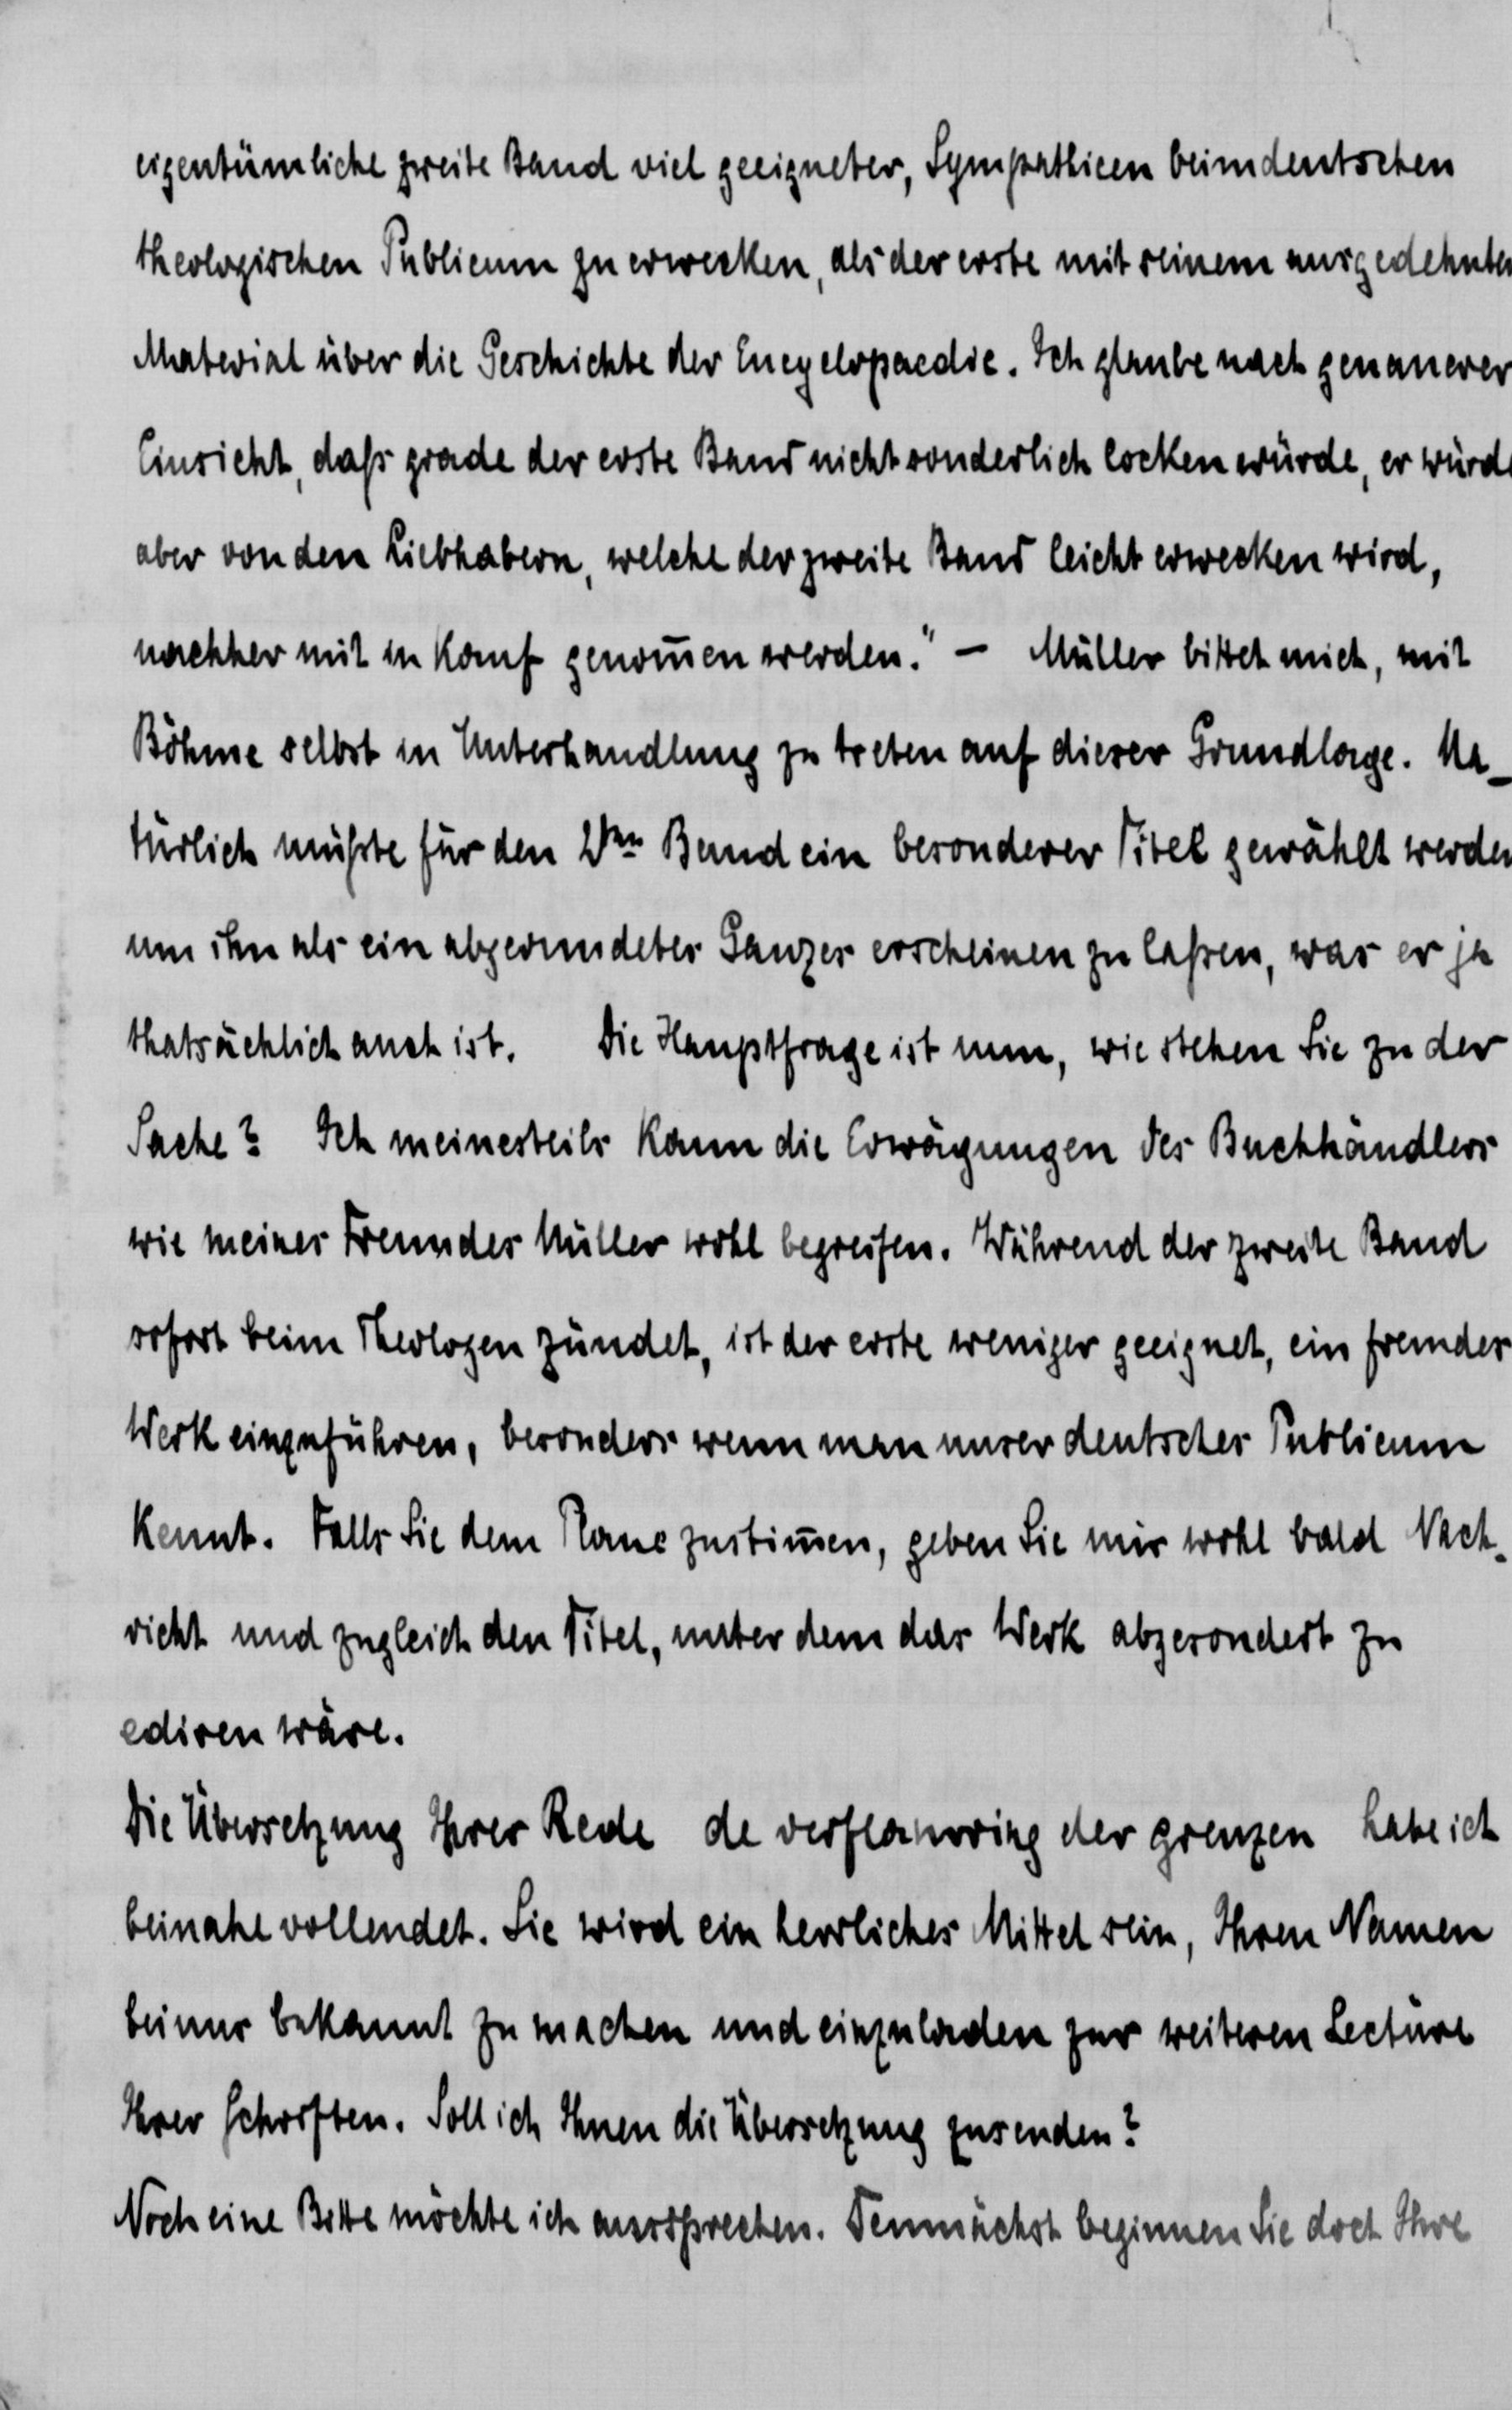 eigentümliche zweite Band viel geeigneter, Sympathieen beim deutschen
theologischen Publicum zu erwecken, als der erste mit seinem ausgedehnten
Material über die Geschichte der Encyclopaedie. Ich glaube nach genauerer
Einsicht, daß grade der erste Band nicht sonderlich locken würde, er würde
aber von den Liebhabern, welche der zweite Band leicht erwecken wird,
nachher mit in Kauf genom̄en werden." – Müller bittet mich, mit
Böhme selbst in Unterhandlung zu treten auf dieser Grundlage. Na-
türlich müßte für den 2ten Band ein besonderer Titel gewählt werden
um ihn als ein abgerundetes Ganzes erscheinen zu laßen, was er ja
thatsächlich auch ist. Die Hauptfrage ist nun, wie stehen Sie zu der
Sache? Ich meinesteils kann die Erwägungen des Buchhändlers
wie meines Freundes Müller wohl begreifen. Während der zweite Band
sofort beim Theologen zündet, ist der erste weniger geeignet, ein fremdes
Werk einzuführen, besonders wenn man unser deutsches Publicum
kennt. Falls Sie dem Plane zustim̄en, geben Sie mir wohl bald Nach-
richt und zugleich den Titel, unter dem das Werk abgesondert zu
ediren wäre.
Die Übersetzung Ihrer Rede de verflauwing der grenzen habe ich
beinahe vollendet. Sie wird ein herrliches Mittel sein, Ihren Namen
bei uns bekannt zu machen und einzuladen zur weiteren Lectüre
Ihrer Schriften. Soll ich Ihnen die Übersetzung zusenden?
Noch eine Bitte möchte ich aussprechen. Demnächst beginnen Sie doch Ihre